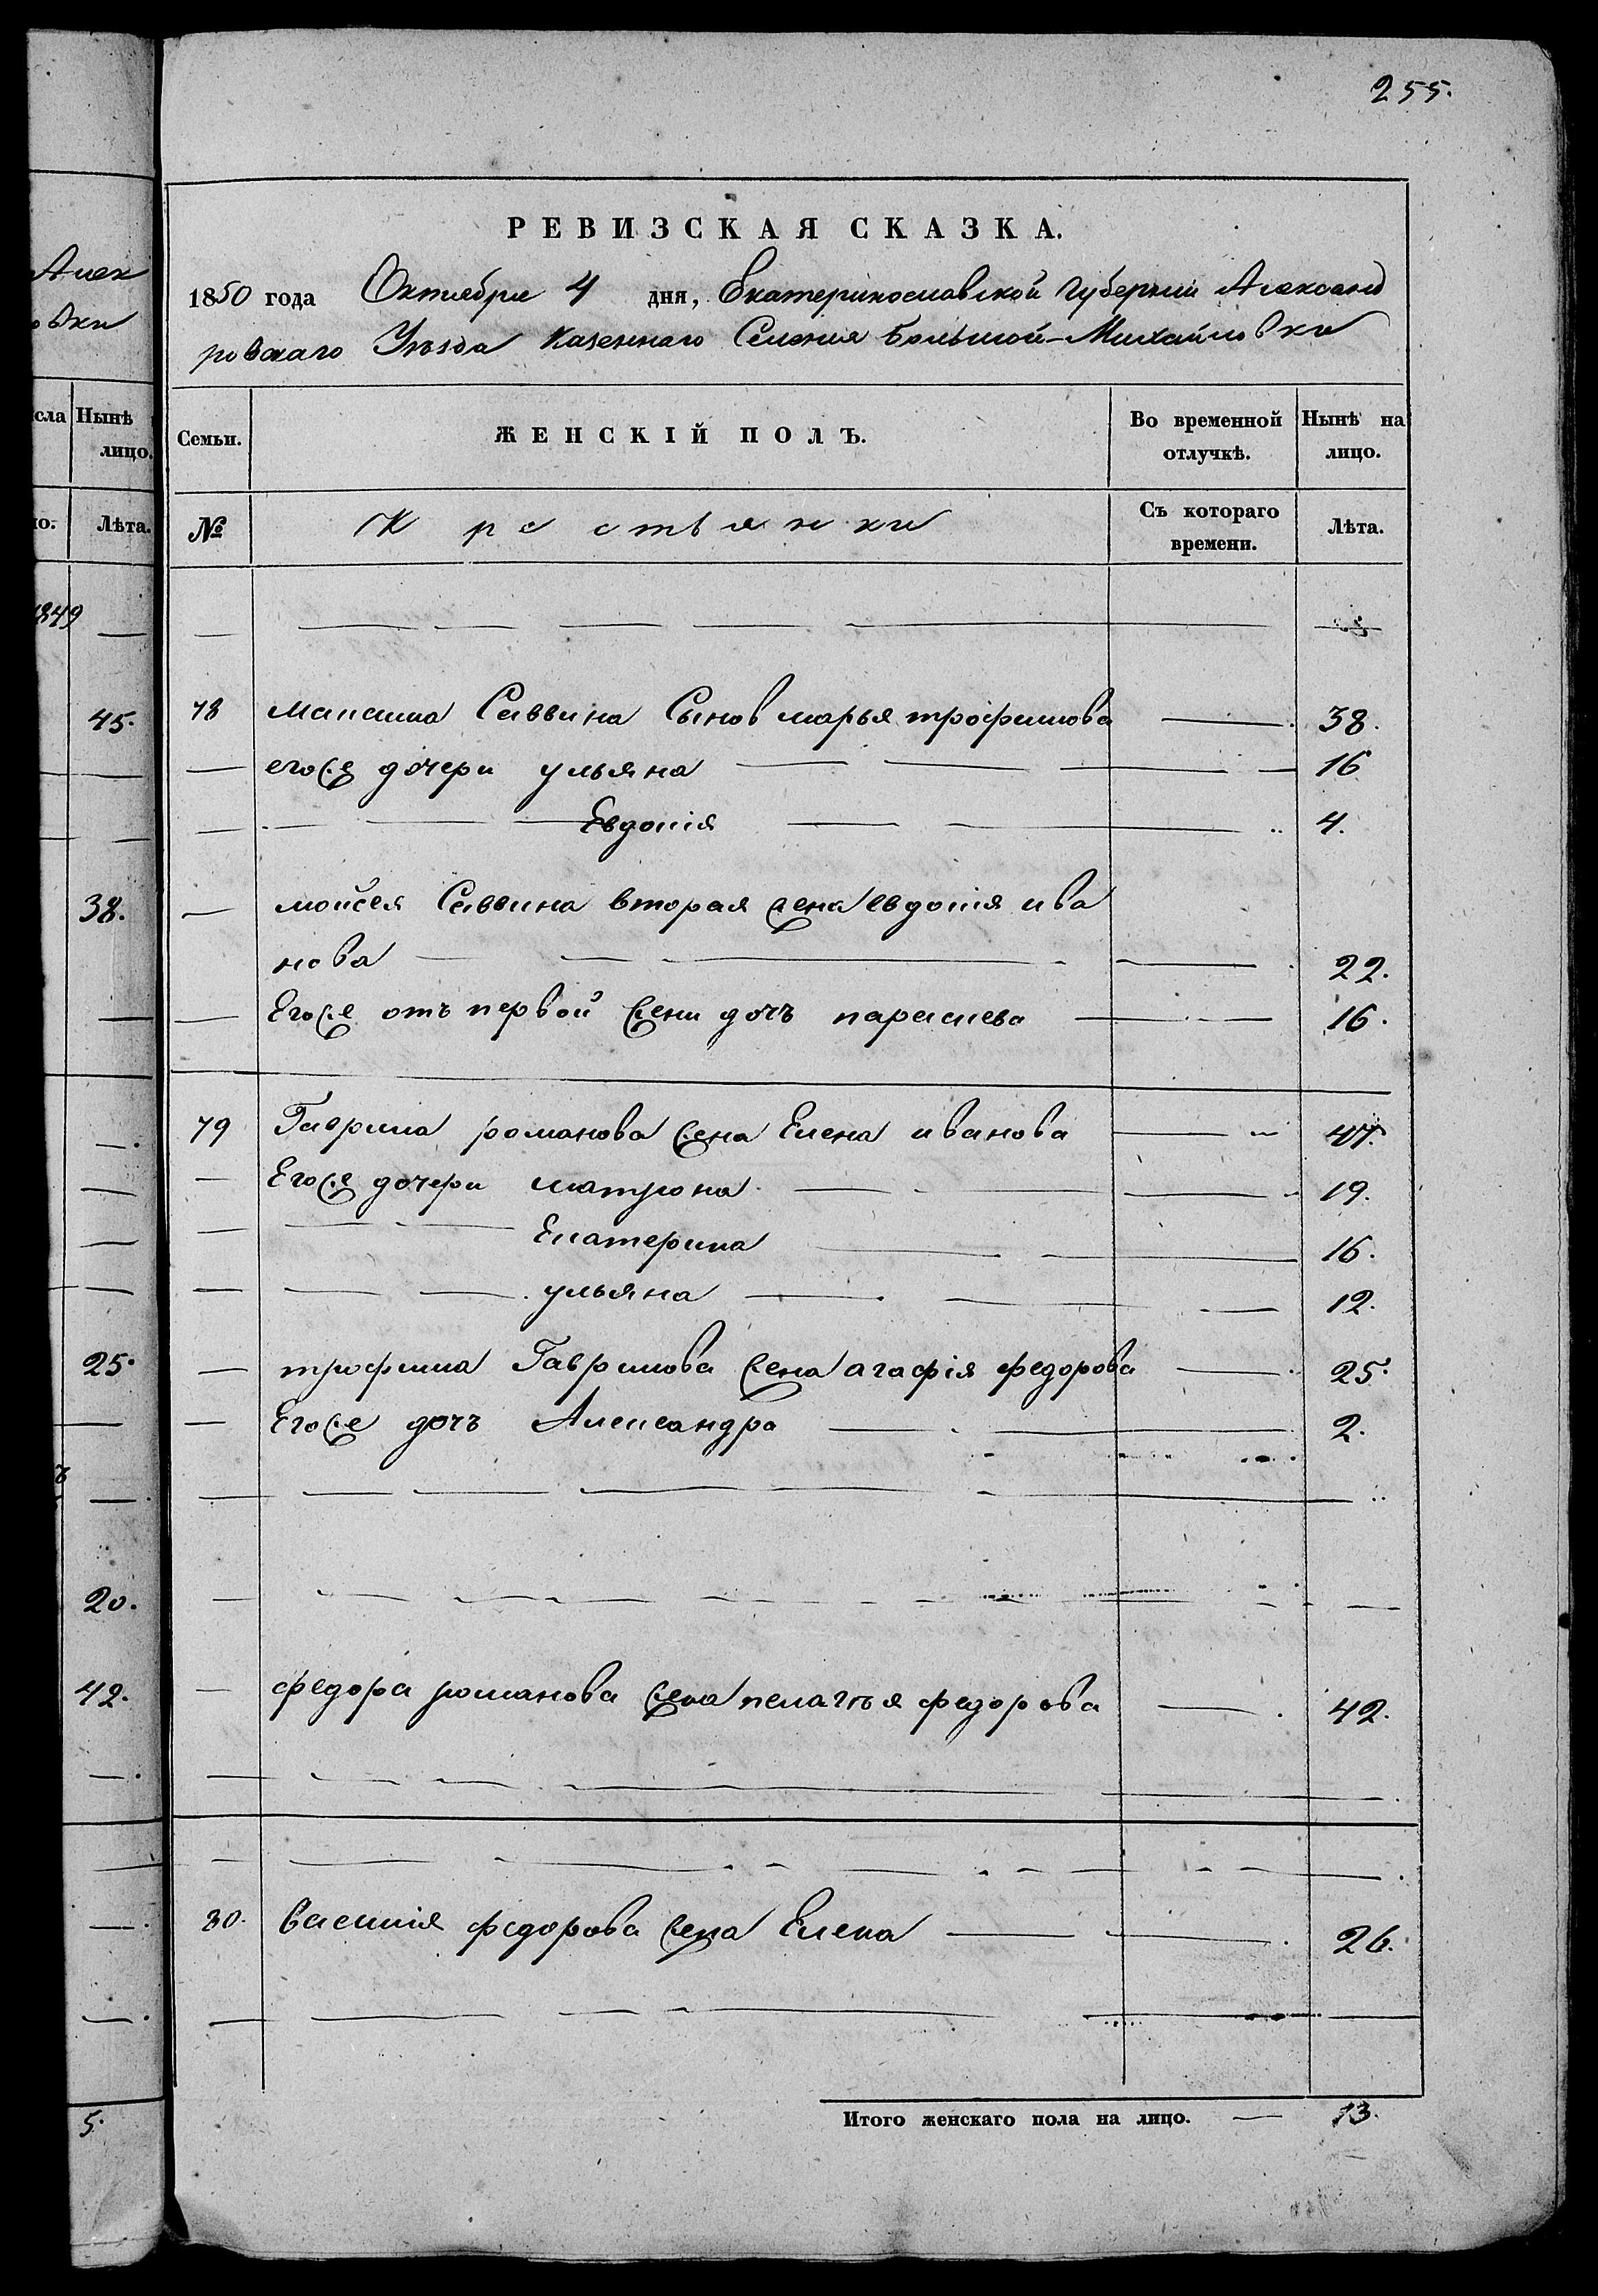 255.
Алек
овки
РЕВИЗСКАЯ СКАЗКА.
1850 года Октября 4 дня, Екатеринославской Губернии Александ
ровскаго Уѣзда Казеннаго Селения Большой-Михайловки
сла Нынѣ
лицо.
Семьи. ЖЕНСКІЙ ПОЛЪ. Во временной Нынѣ на
отлучкѣ. лицо.
но. Лѣта. № Крестьянки Съ котораго Лѣта.
времени.
1849
45. 78 максима Саввина Сынов марья трофимова 38.
егоже дочери ульяна 16
Евдокія 4.
38. мойсея Саввина вторая жена евдокія ива
нова 22.
Егоже отъ первой жени дочъ параскева 16.
79 Гаврила романова жена Елена иванова 47.
Егоже дочери матрона 19.
Екатерина 16.
ульяна 12.
25. трофима Гаврилова жена агафія федорова 25.
Егоже дочъ Александра 2.
ъ
20.
42. федора романова жена пелагъя федорова 42.
80. василия федорова жена Елена 26.
5. Итого женскаго пола на лицо. 13.